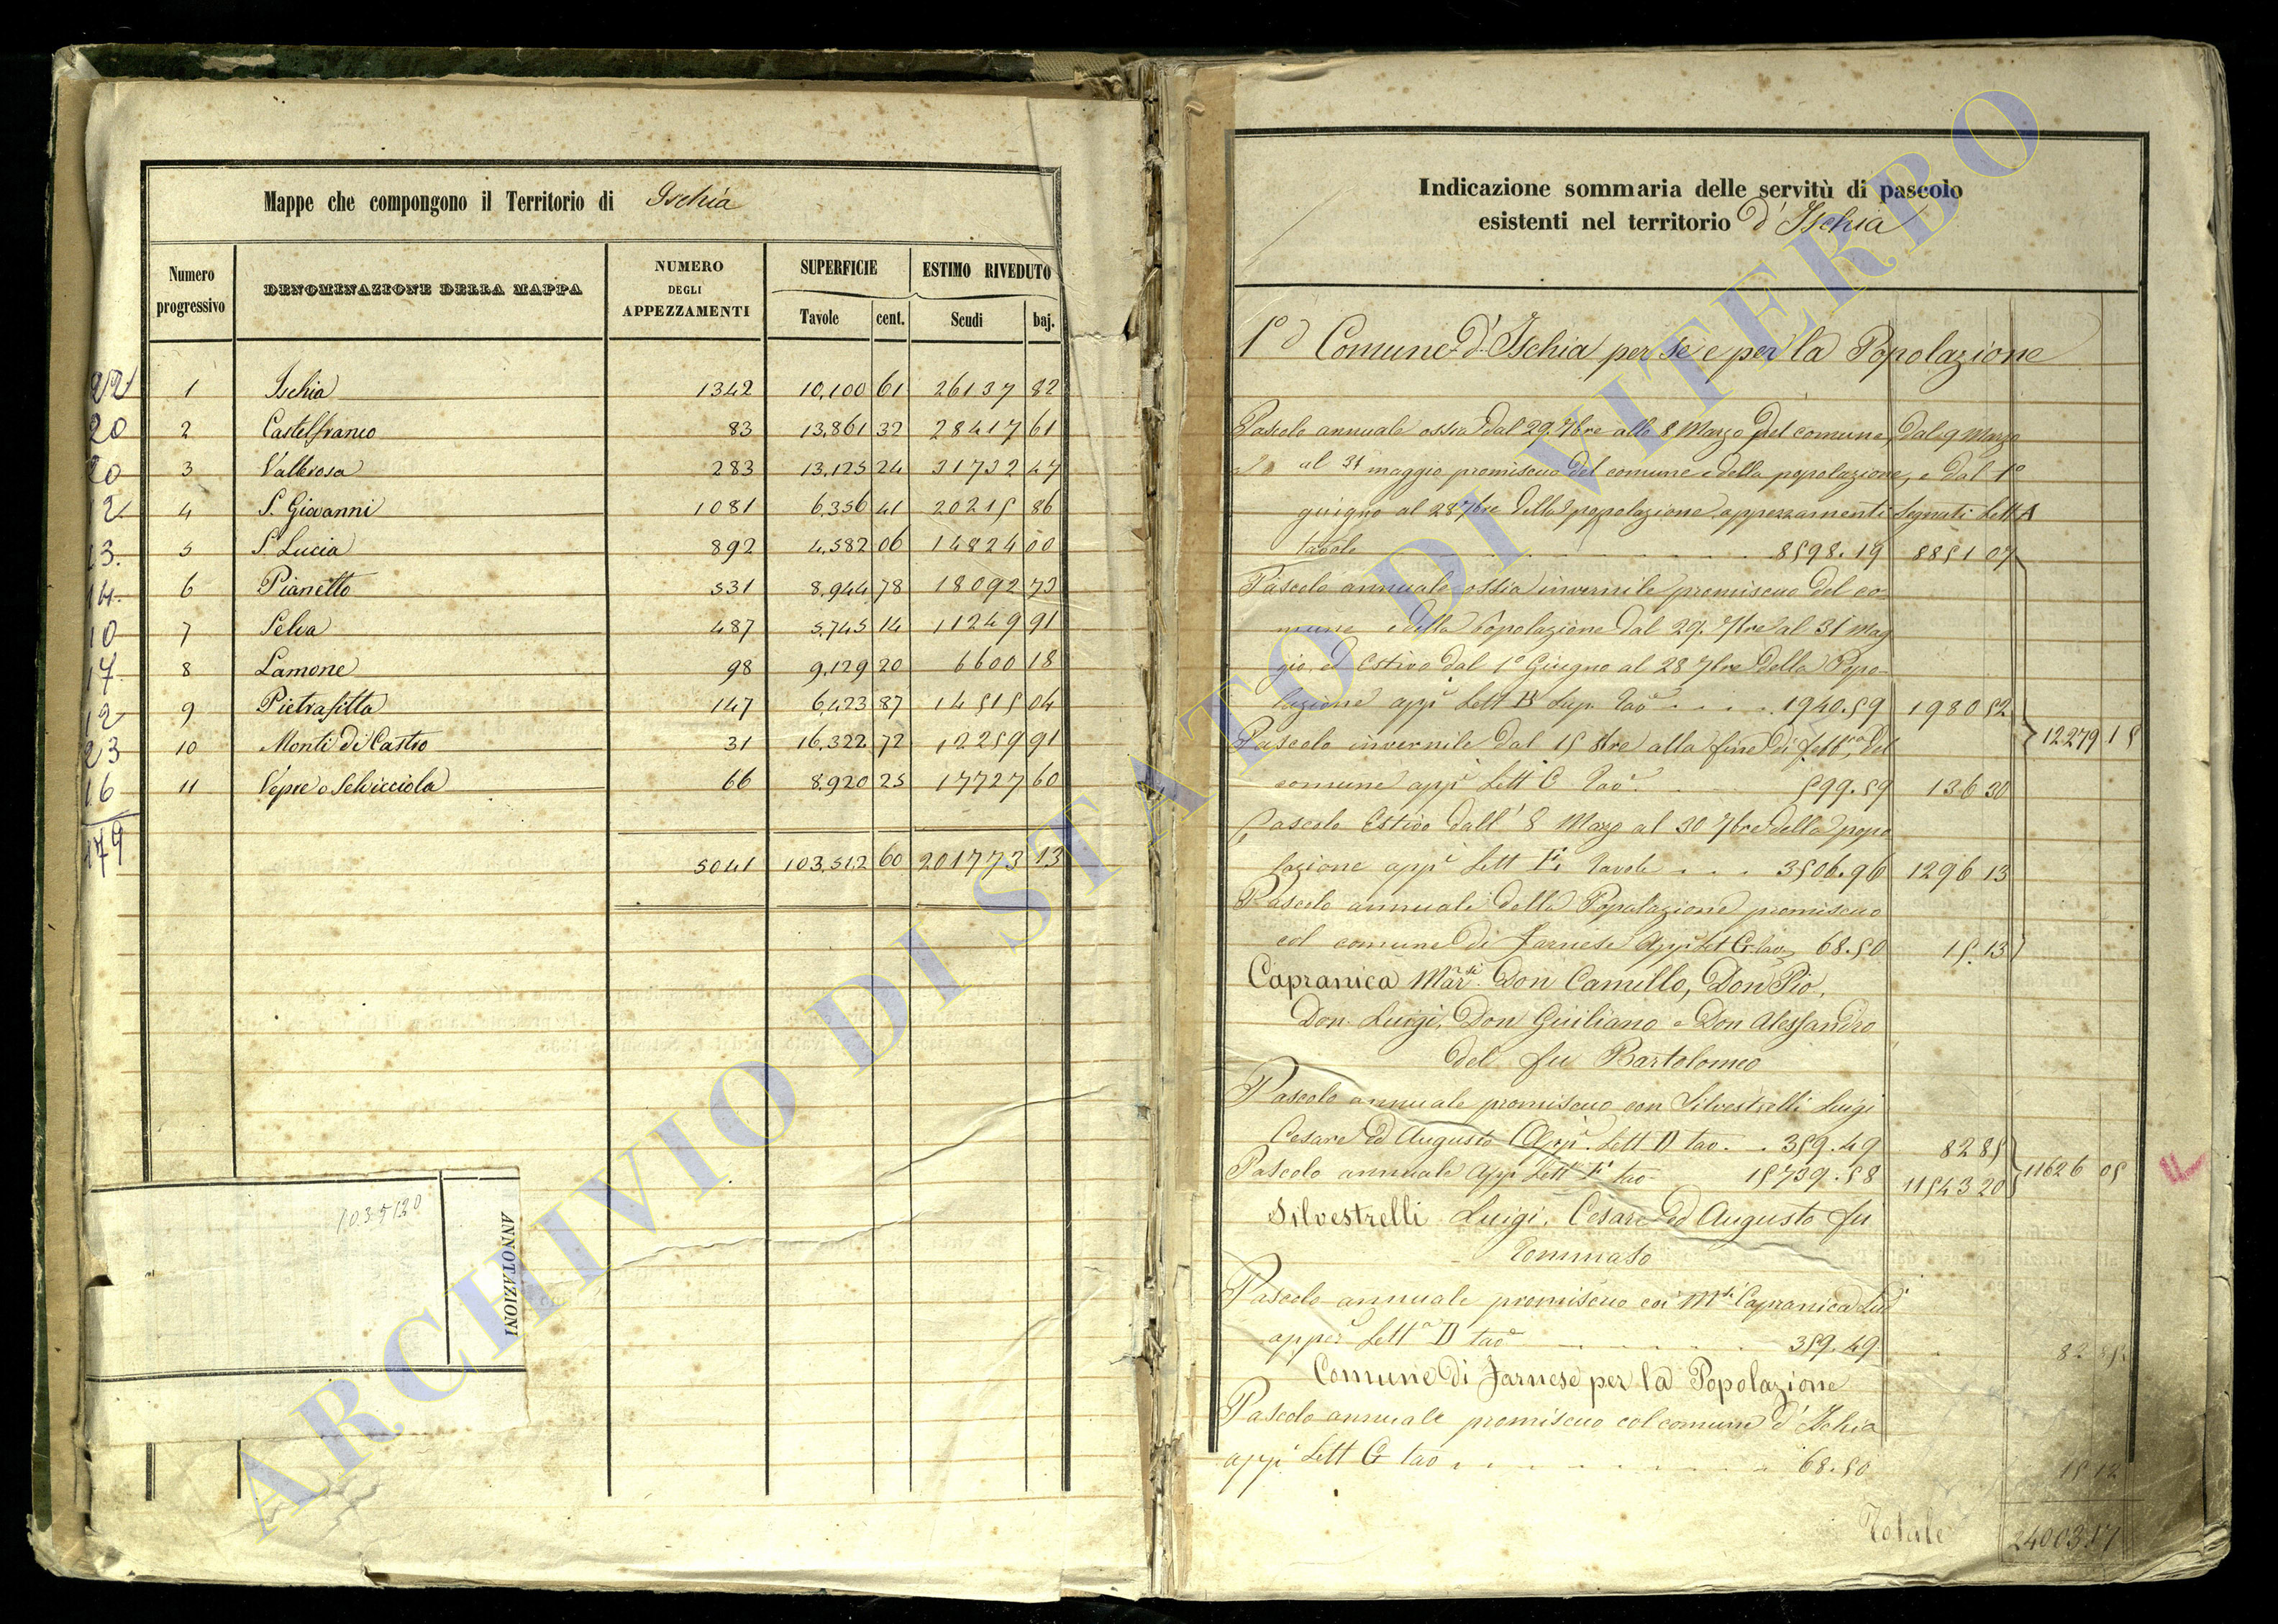 Mappe che compongono il Territorio di Ischia
Numero progressivo DENOMINAZIONE DELLA MAPPA NUMERO DEGLI APPEZZAMENTI SUPERFICIE ESTIMO RIVEDUTO
Tavole cent. Scudi baj.
22 1 Ischia 1342 10,100 61 26137 82
20 2 Castelfranco 83 13,861 32 28417 61
20 3 Valberosa 283 13,125 24 31732 47
12 4 S. Giovanni 1081 6,356 41 20215 86
13. 5 S. Lucia 892 4,582 06 14824 00
14. 6 Pianetto 531 8,944 78 18092 73
10 7 Selva 487 5,745 14 11249 91
17 8 Lamone 98 9,129 20 6600 18
12 9 Pietrafitta 147 6,423 87 14515 04
23 10 Monti di Castro 31 16,322 72 12259 91
16 11 Vepre o Selvicciola 66 8,920 25 17727 60
179
5041 103,512 60 201773 13
1035120
ANNOTAZIONI
Indicazione sommaria delle servitù di pascolo
esistenti nel territorio d'Ischia
1° Comune d'Ischia per se e per la Popolazione
Pascolo annuale ossia dal 29. 7bre alla 8 Marzo del comune, dal 9 Marzo
al 31 maggio promiscuo del comune e della popolazione, e dal 1°
giugno al 28 7bre della popolazione appezzamenti segnati Lett A
tavole 8598.19 8851 07
Pascolo annuale ossia invernile promiscuo del co-
mune e della Popolazione dal 29. 7bre al 31 Mag
gio, ed Estivo dal 1° Giugno al 28 7bre della Popo-
lazione appi Lett B Sup. Tave 1940.59 1980 52
Pascolo invernile dal 15 8bre alla fine di febb. del 12279 15
comune appi Lett C Tav. 599.59 136 30
Pascolo Estivo dall' 8 Marzo al 30 7bre della popo
lazione appi Lett F. Tavole 3506.96 1296 13
Pascolo annuale della Popolazione promiscuo
col comune di Farnese App Let G. tav. 68.50 15.13
Capranica Marsi Don Camillo, Don Pio,
Don Luigi, Don Guiliano e Don Alessandro
del fu Bartolomeo
Pascolo annuale promiscuo con Silvestrelli Luigi
Cesare ed Augusto Appi Lett D tav. 359.49 82 85
Pascolo annuale App Lett E tav 15739.58 11543 20 11626 05
Silvestrelli Luigi, Cesare ed Augusto fu
Tommaso
Pascolo annuale promiscuo coi Msi Capranica
appei Letta D tave 359.49 82 85
Comune di Farnese per la Popolazione
Pascolo annuale promiscuo col comune d'Ischia
appi Lett G tav 68.50 15 12
Totale 24003.17
ARCHIVIO DI STATO DI VITERBO